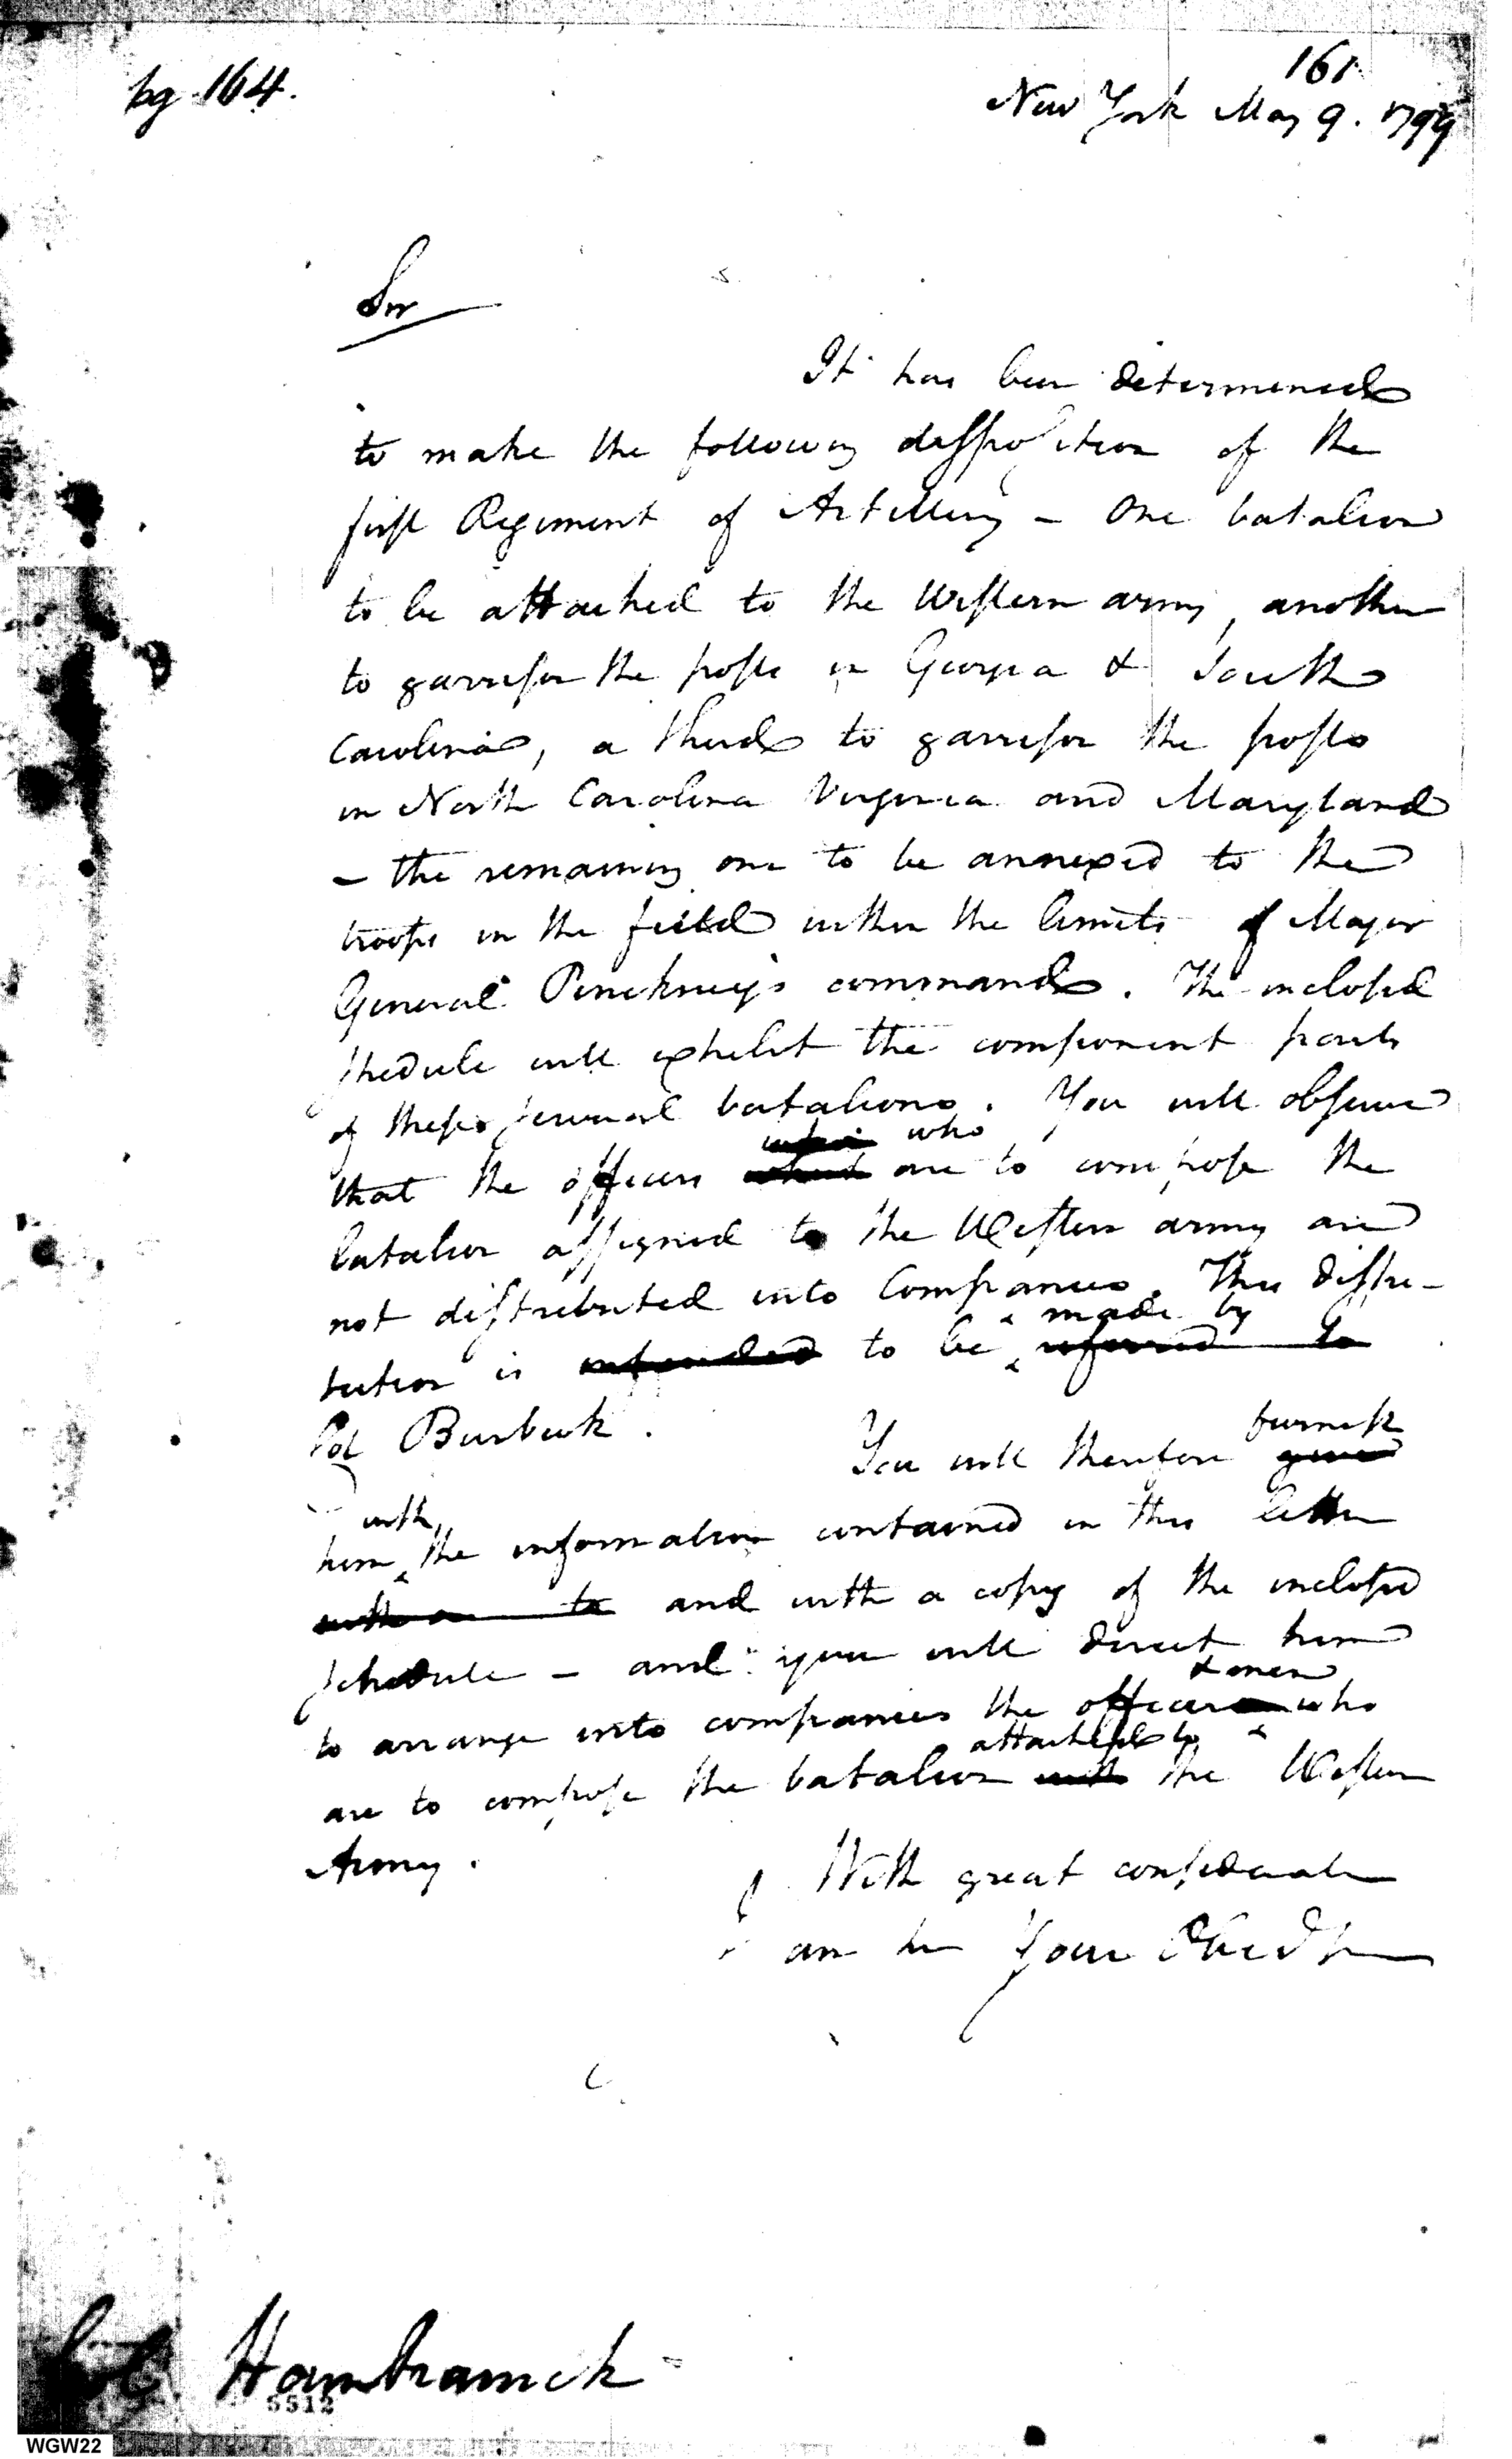 pg 164.
161
New York May 9. 1799
Sir
It has been determined
to make the following disposition of the
first Regiment of Artillery – One batalion
to be attached to the Western army, another
to garrison the posts in Georgia & South
Carolina, a third to garrison the posts
in North Carolina Virginia and Maryland
– the remaining one to be annexed to the
troops in the field within the limits of Major
General Pinckney's command. The inclosed
shedule will exhibit the component parts
of these several batalions. You will observe
who
that the officers are to compose the
batalion assigned to the Western army are
not distributed into Companies. This distri-
made by
tution is intended to be referred to
Col Burbeck.
furnish
You will therefore
with
him the information contained in this letter
and with a copy of the inclosed
schedule – and you will direct him
& men
to arrange into companies the officers who
attached to
are to compose the batalion with the Western
Army.
With great consideration
am Sir Your Obed S
Col Hamtramck
5512
WGW22